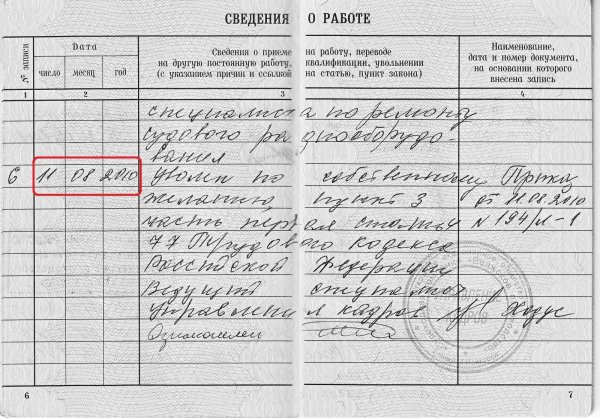 СВЕДЕНИЯ О РАБОТЕ
№ записи
Дата
число месяц год
Сведения о приеме на работу, переводе
на другую постоянную работу, квалификации, увольнении
(с указанием причин и ссылкой на статью, пункт закона)
Наименование,
дата и номер документа,
на основании которого
внесена запись
1 2 3 4
специалиста по ремонту
судового радиооборудо-
вания
6 11 08 2010 Уволен по собственному Приказ
желанию, пункт 3 от 11.08.2010
часть первая статьи №194/л-1
77 Трудового кодекса
Российской Федерации
Ведущий специалист
управления кадров Ходус
Ознакомлен
6 7